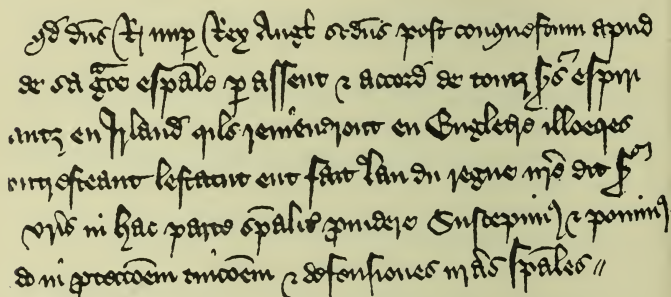 qd dns R nup Rex Angl scdus post conquestum apud
de sa gce espale p assent & accord de toutz srs espiri
antz en Irland qils reviendront en Engletre illoeqes
ntresteant lestatut ent fait lan du regne nre dit sr
vris in hac parte spalit pvidere Suscepim9 & ponim9
do in pteccoem tuicoem & defensiones nras spales //